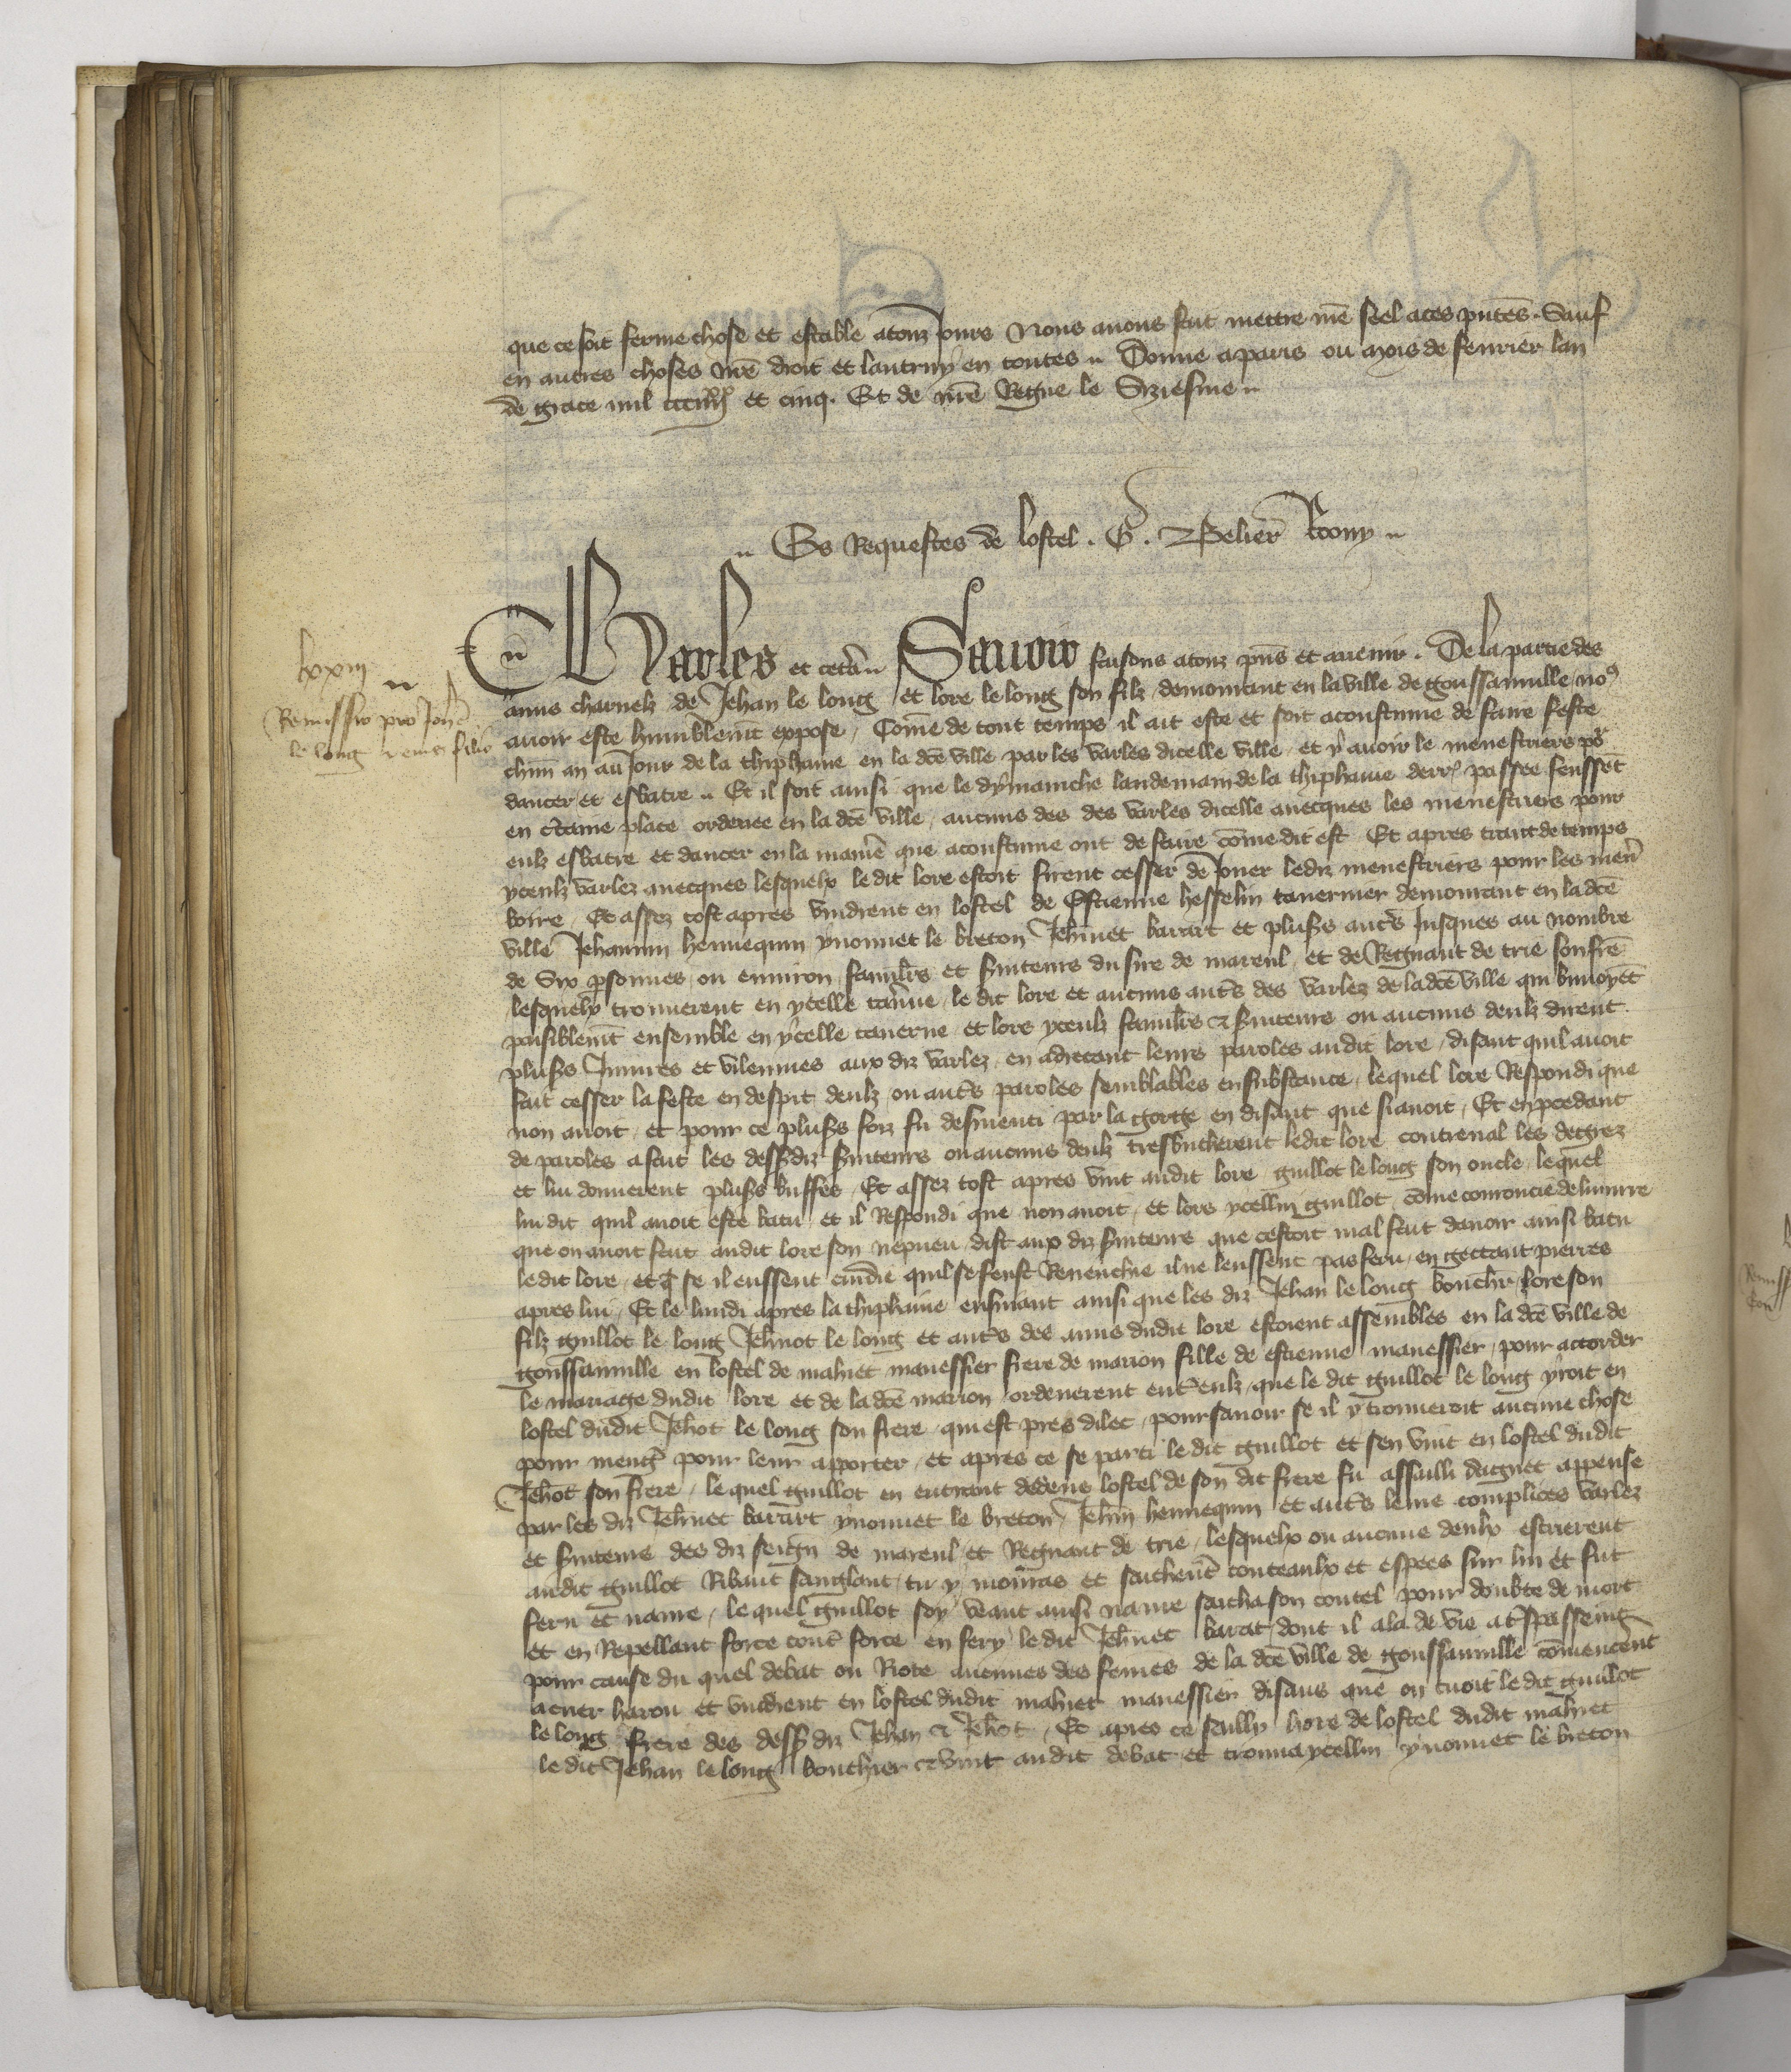 que ce soit ferme chose et estable a touz Jours Nous auons fait mettre nr̄e seel a ces pn̄tes. Sauf
en autres choses nr̄e droit et lautruy en toutes Donne a paris ou mois de feurier lan
de grace mil ccciiiixx et cinq. Et de nr̄e Regne le Siziesme
Es Requestes de lostel. G. Pelier
lxxiii
Remissio pro Joh̄e le long et eius filio
Charles et cetera Sauoir faisons a touz pn̄s et auenir. De la partie des
amis charnelz de Jehan le long et lore le long son filz demourant en la ville de goussainuille no9
auoir este humblemt̄ expose, Com̄e de tout temps il ait este et soit acoustume de faire feste
chūn an au Jour de la thiphaine en la dc̄e ville par les varles dicelle ville et y auoir le menestriers pr̄
dancer et esbatre Et il soit ainsi que le dymanche landemain de la thiphaine derr̄ passee feussēt
en c̄taine place ordenee en la dc̄e ville, aucuns des des varles dicelle auecques les menestriers pour
eulz esbatre et dancer en la manīe que acoustume ont de faire com̄e dit est Et apres trait de temps
yceulz varlez auecques lesquelx le dit lore estoit firent cesser de Jouer lediz menestriers pour les men̄
boire, Et assez tost apres vindrent en lostel de Estienne hesselin tauernier demourant en la dc̄e
ville Jehannin hennequin ynonnet le breton Jeh̄net barart et plus̄s aut̄s Jusques au nombre
de Six p̱sonnes ou enuiron famil̄rs et s̄uiteurs du sire de mareul et de Regnaut de trie son fr̄e
lesquelx trouuerent en ycelle tau̅ne le dit lore et aucuns aut̄s des varlez de la dc̄e ville qui buuoyēt
paisiblemt̄ ensemble en ycelle tauerne et lors yceulz famil̄rs & s̄uiteurs ou aucuns deulz dirent
plus̄s Iniures et vilennies aux diz varlez en adrecant leurs paroles audit lore, disant quil auoit
fait cesser la feste en despit deulz, ou aut̄s paroles semblables en substance, lequel lore Respondi que
non auoit, et pour ce plus̄s foiz fu desmenti par la gorge en disant que si auoit, Et en p̱cedant
de paroles a fait les dess9diz s̄uiteurs ou aucuns deulz tresbucherent ledit lore contreual les degrez
et lui donnerent plus̄s buffes, Et assez tost apres vint audit lore guillot le long son oncle, lequel
lui dit quil auoit este batu et il Respondi que non auoit, et lors ycellui guillot com̄e couroucie de liniure
que on auoit fait audit lore son nepueu dist aux diz s̄uiteurs que cestoit mal fait dauoir ainsi batu
ledit lore, et q̄ se il eussent cuidie quil se feust Reuenchie il ne leussent pas feru, en gectant pierres
apres lui, Et le lundi apres la thiphaine ensuiant ainsi que les diz Jehan le long bouch̄r lore son
filz guillot le long Jeh̄not le long et aut̄s des amis dudit lore estoient assembles en la dc̄e ville de
goussainuille en lostel de mahiet manessier frere de marion fille de estienne manessier, pour accorder
le mariage dudit lore et de la dc̄e marion ordenerent ent̄ eulz, que le dit guillot le long yroit en
lostel dudit Jeh̄ot le long son frere qui est pres dilec, pour sauoir se il y trouueroit aucune chose
pour menḡ pour leur apporter, et apres ce se parti le dit guillot et sen vint en lostel dudit
Jeh̄ot son frere, lequel guillot en entrant dedens lostel de son dit frere fu assailli daguet appense
par les diz Jeh̄net barart ynonnet le breton, Jeh̄in hennequin et aut̄s leurs complices varlez
et s̄uiteurs des diz seign̄ de mareul et Regnaut de trie, lesquelx ou aucuns deulx escrierent
audit guillot Ribaut sanglant, tu y mourras et sachent̄ couteaulx et espees sur lui et fut
feru et naure, lequel guillot soy veant ainsi naure sacha son coutel pour doubte de mort
et en Repellant force cont̄ force en fery le dit Jeh̄net barat dont il ala de vie a t̄spassemt̄
pour cause du quel debat ou Riote aucunes des femes de la dc̄e ville de goussainuille com̄encer̄nt
a crier harou et vindrent en lostel dudit mahiet manessier disans que on tuoit ledit guillot
le long frere des dess9diz Jehan & Jeh̄ot, Et apres ce sailly hors de lostel dudit mahiet
le dit Jehan le long bouchier & vint audit debat et trouua ycellui ynonnet le breton